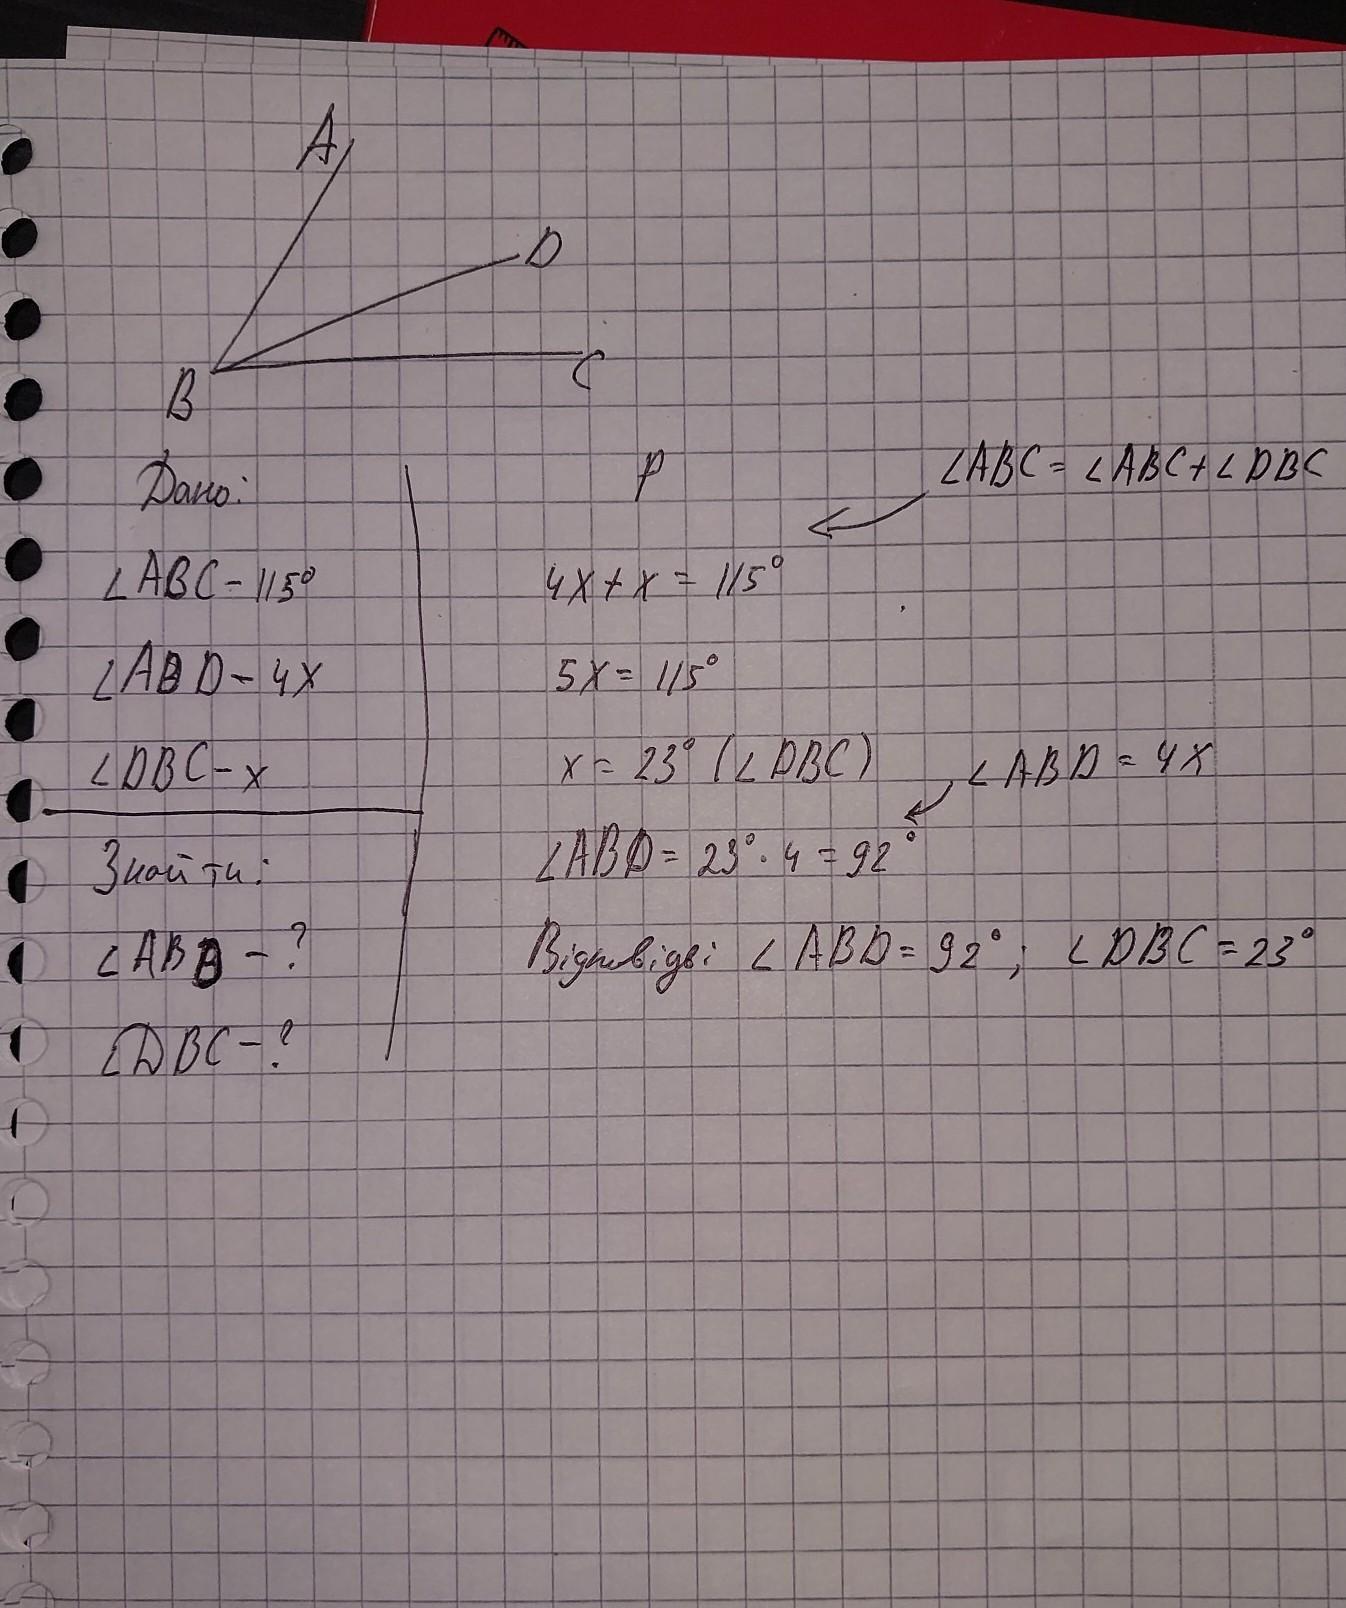 A
D
B
C
Дано:
∠ABC - 115°
∠ABD - 4x
∠DBC - x
Знайти:
∠ABD - ?
∠DBC - ?
P
∠ABC = ∠ABC + ∠DBC
4x + x = 115°
5x = 115°
x = 23° (∠DBC)
∠ABD = 4x
∠ABD = 23° · 4 = 92°
Відповіді: ∠ABD = 92°; ∠DBC = 23°